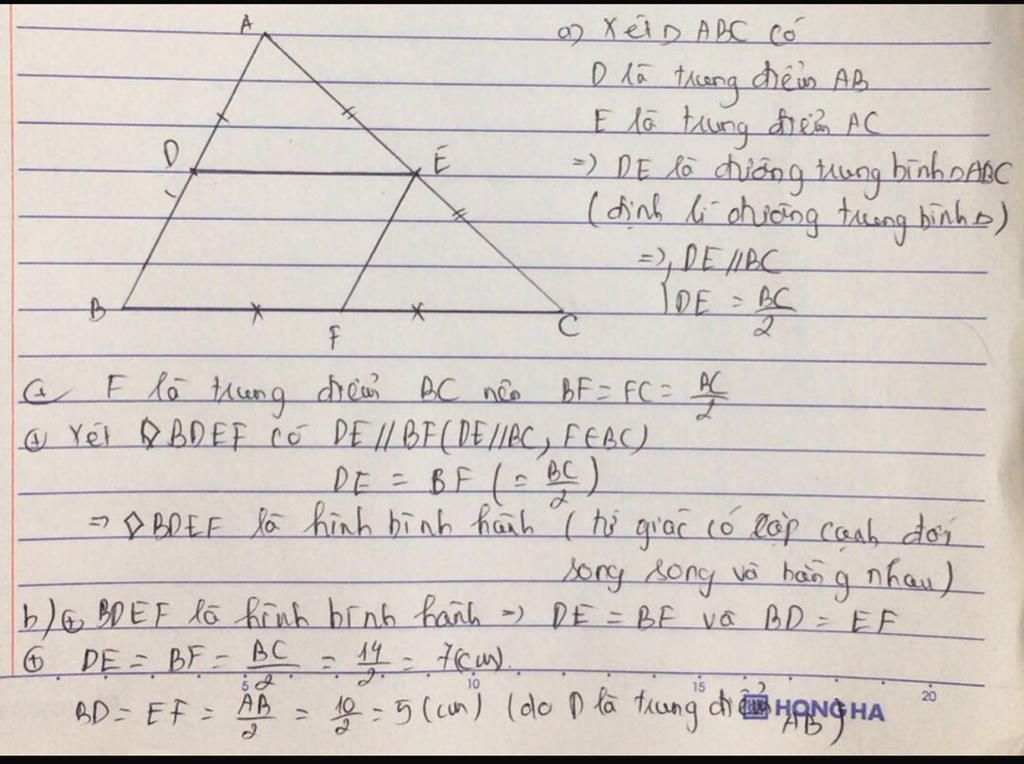 A
D
E
B
F
C
a) Xét Δ ABC có
D là trung điểm AB
E là trung điểm AC
=> DE là đường trung bình Δ ABC
(định lí đường trung bình Δ)
=> { DE // BC
DE = BC/2
⊕ F là trung điểm BC nên BF = FC = BC/2
⊕ Xét ◊ BDEF có DE // BF (DE // BC, F ∈ BC)
DE = BF (= BC/2)
=> ◊ BDEF là hình bình hành (tứ giác có cặp cạnh đối
song song và bằng nhau)
b) ⊕ BDEF là hình bình hành => DE = BF và BD = EF
⊕ DE = BF = BC/2 = 14/2 = 7 (cm).
5 10 15 20
BD = EF = AB/2 = 10/2 = 5 (cm) (do D là trung điểm AB)
HONG HA